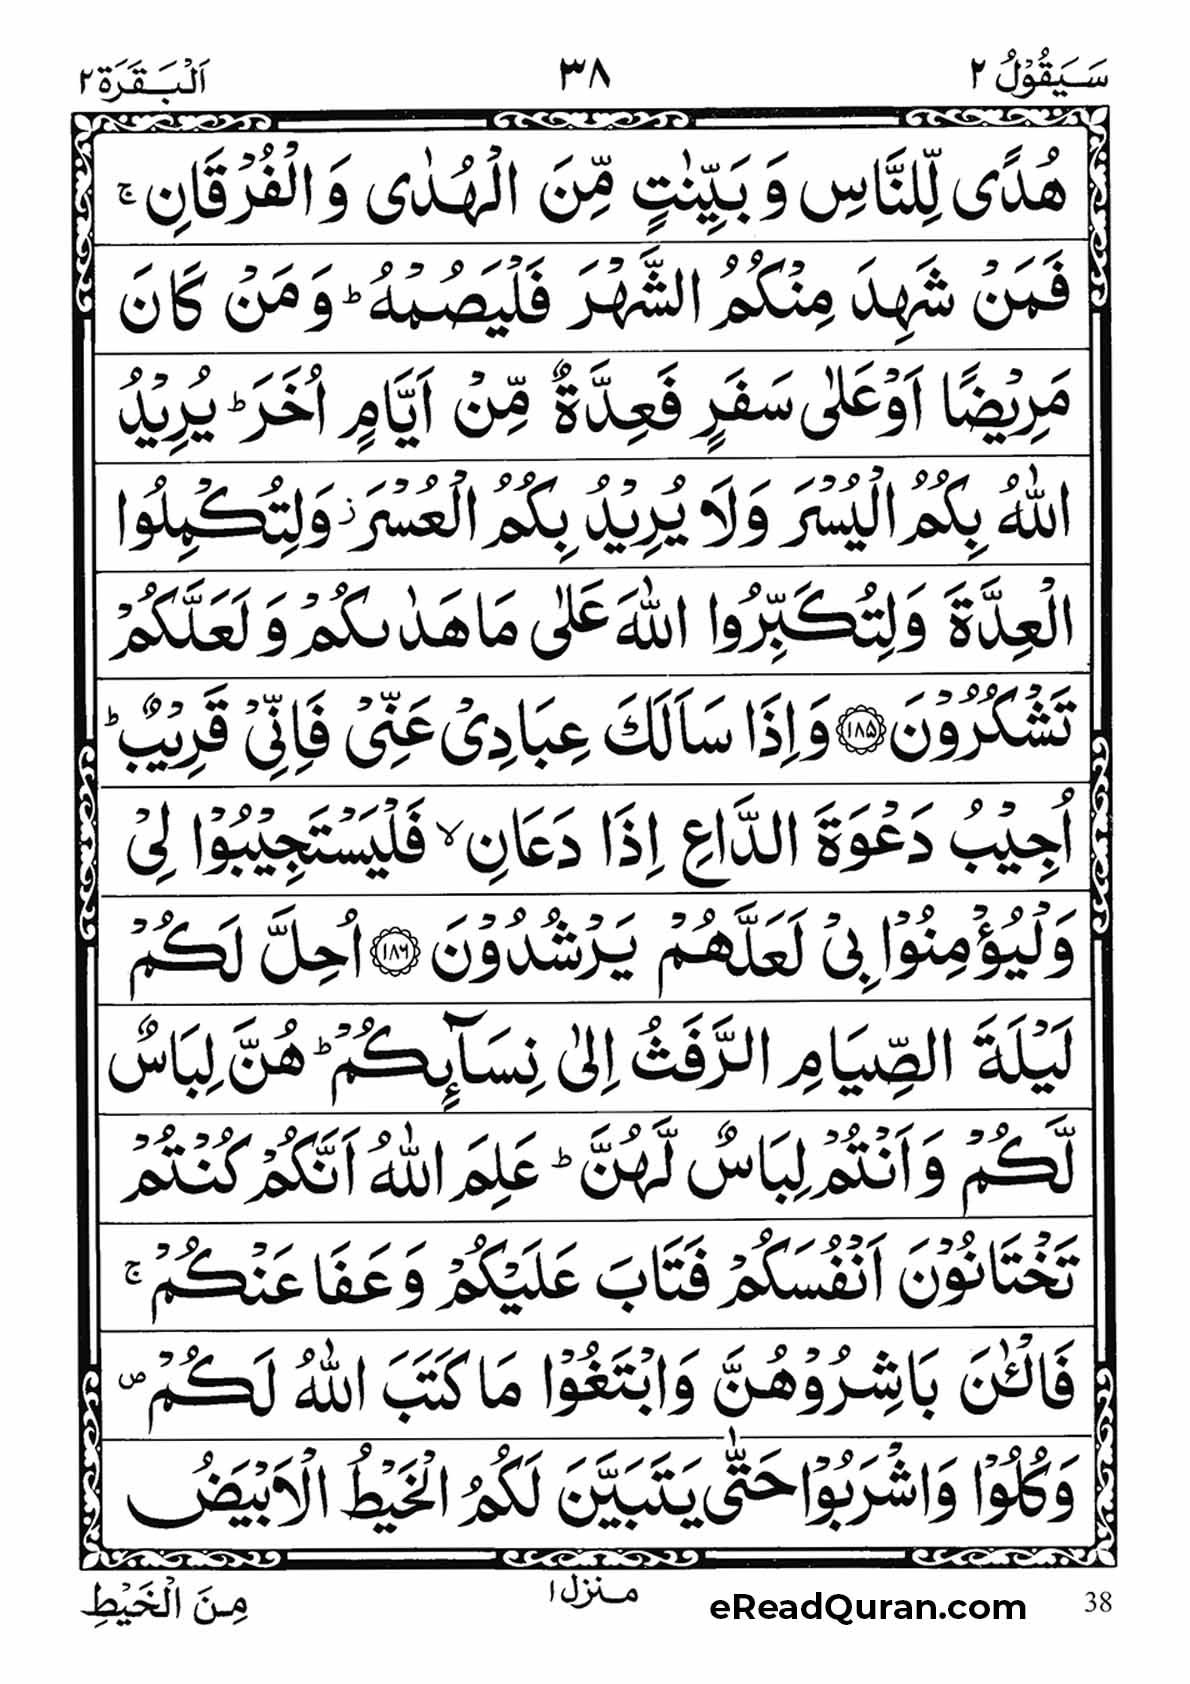 سَيَقُوْلُ ٢
٣٨
اَلْبَقَرَة ٢
هُدًى لِّلنَّاسِ وَ بَيِّنٰتٍ مِّنَ الْهُدٰى وَ الْفُرْقَانِ ۚ
فَمَنْ شَهِدَ مِنْكُمُ الشَّهْرَ فَلْيَصُمْهُ ؕ وَ مَنْ كَانَ
مَرِيْضًا اَوْ عَلٰى سَفَرٍ فَعِدَّةٌ مِّنْ اَيَّامٍ اُخَرَ ؕ يُرِيْدُ
اللّٰهُ بِكُمُ الْيُسْرَ وَلَا يُرِيْدُ بِكُمُ الْعُسْرَ ز وَلِتُكْمِلُوا
الْعِدَّةَ وَلِتُكَبِّرُوا اللّٰهَ عَلٰى مَا هَدٰىكُمْ وَ لَعَلَّكُمْ
تَشْكُرُوْنَ ﴿١٨٥﴾ وَاِذَا سَاَلَكَ عِبَادِىْ عَنِّىْ فَاِنِّىْ قَرِيْبٌ ؕ
اُجِيْبُ دَعْوَةَ الدَّاعِ اِذَا دَعَانِ ۙ فَلْيَسْتَجِيْبُوْا لِىْ
وَلْيُؤْمِنُوْا بِىْ لَعَلَّهُمْ يَرْشُدُوْنَ ﴿١٨٦﴾ اُحِلَّ لَكُمْ
لَيْلَةَ الصِّيَامِ الرَّفَثُ اِلٰى نِسَآىِٕكُمْ ؕ هُنَّ لِبَاسٌ
لَّكُمْ وَ اَنْتُمْ لِبَاسٌ لَّهُنَّ ؕ عَلِمَ اللّٰهُ اَنَّكُمْ كُنْتُمْ
تَخْتَانُوْنَ اَنْفُسَكُمْ فَتَابَ عَلَيْكُمْ وَ عَفَا عَنْكُمْ ۚ
فَالْـٰٔنَ بَاشِرُوْهُنَّ وَ ابْتَغُوْا مَا كَتَبَ اللّٰهُ لَكُمْ ص
وَ كُلُوْا وَ اشْرَبُوْا حَتّٰى يَتَبَيَّنَ لَكُمُ الْخَيْطُ الْاَبْيَضُ
مِنَ الْخَيْطِ
منزل ١
eReadQuran.com
38